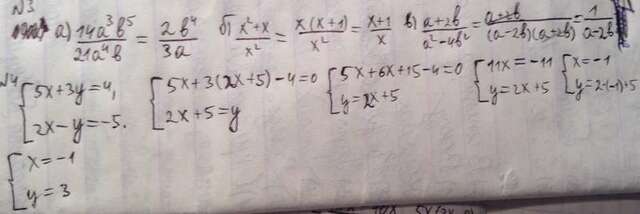 №3
а) 14a³b⁵/21a⁴b = 2b⁴/3a б) x²+x/x² = x(x+1)/x² = x+1/x в) a+2b/a²-4b² = a+2b/(a-2b)(a+2b) = 1/a-2b
№4
{5x+3y=4, {5x+3(2x+5)-4=0 {5x+6x+15-4=0 {11x=-11 {x=-1
2x-y=-5. 2x+5=y y=2x+5 y=2x+5 y=2·(-1)+5
{x=-1
y=3